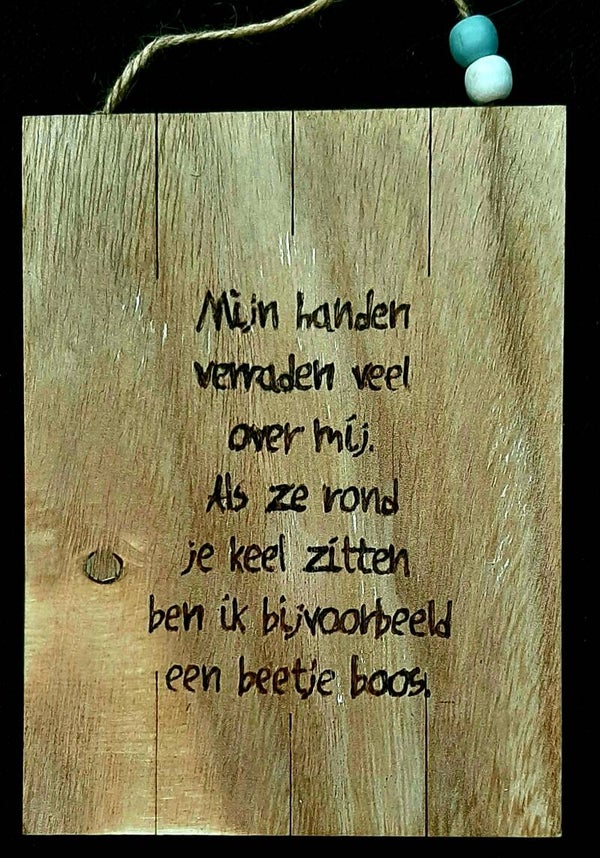 Mijn handen
verraden veel
over mij.
Als ze rond
je keel zitten
ben ik bijvoorbeeld
een beetje boos.